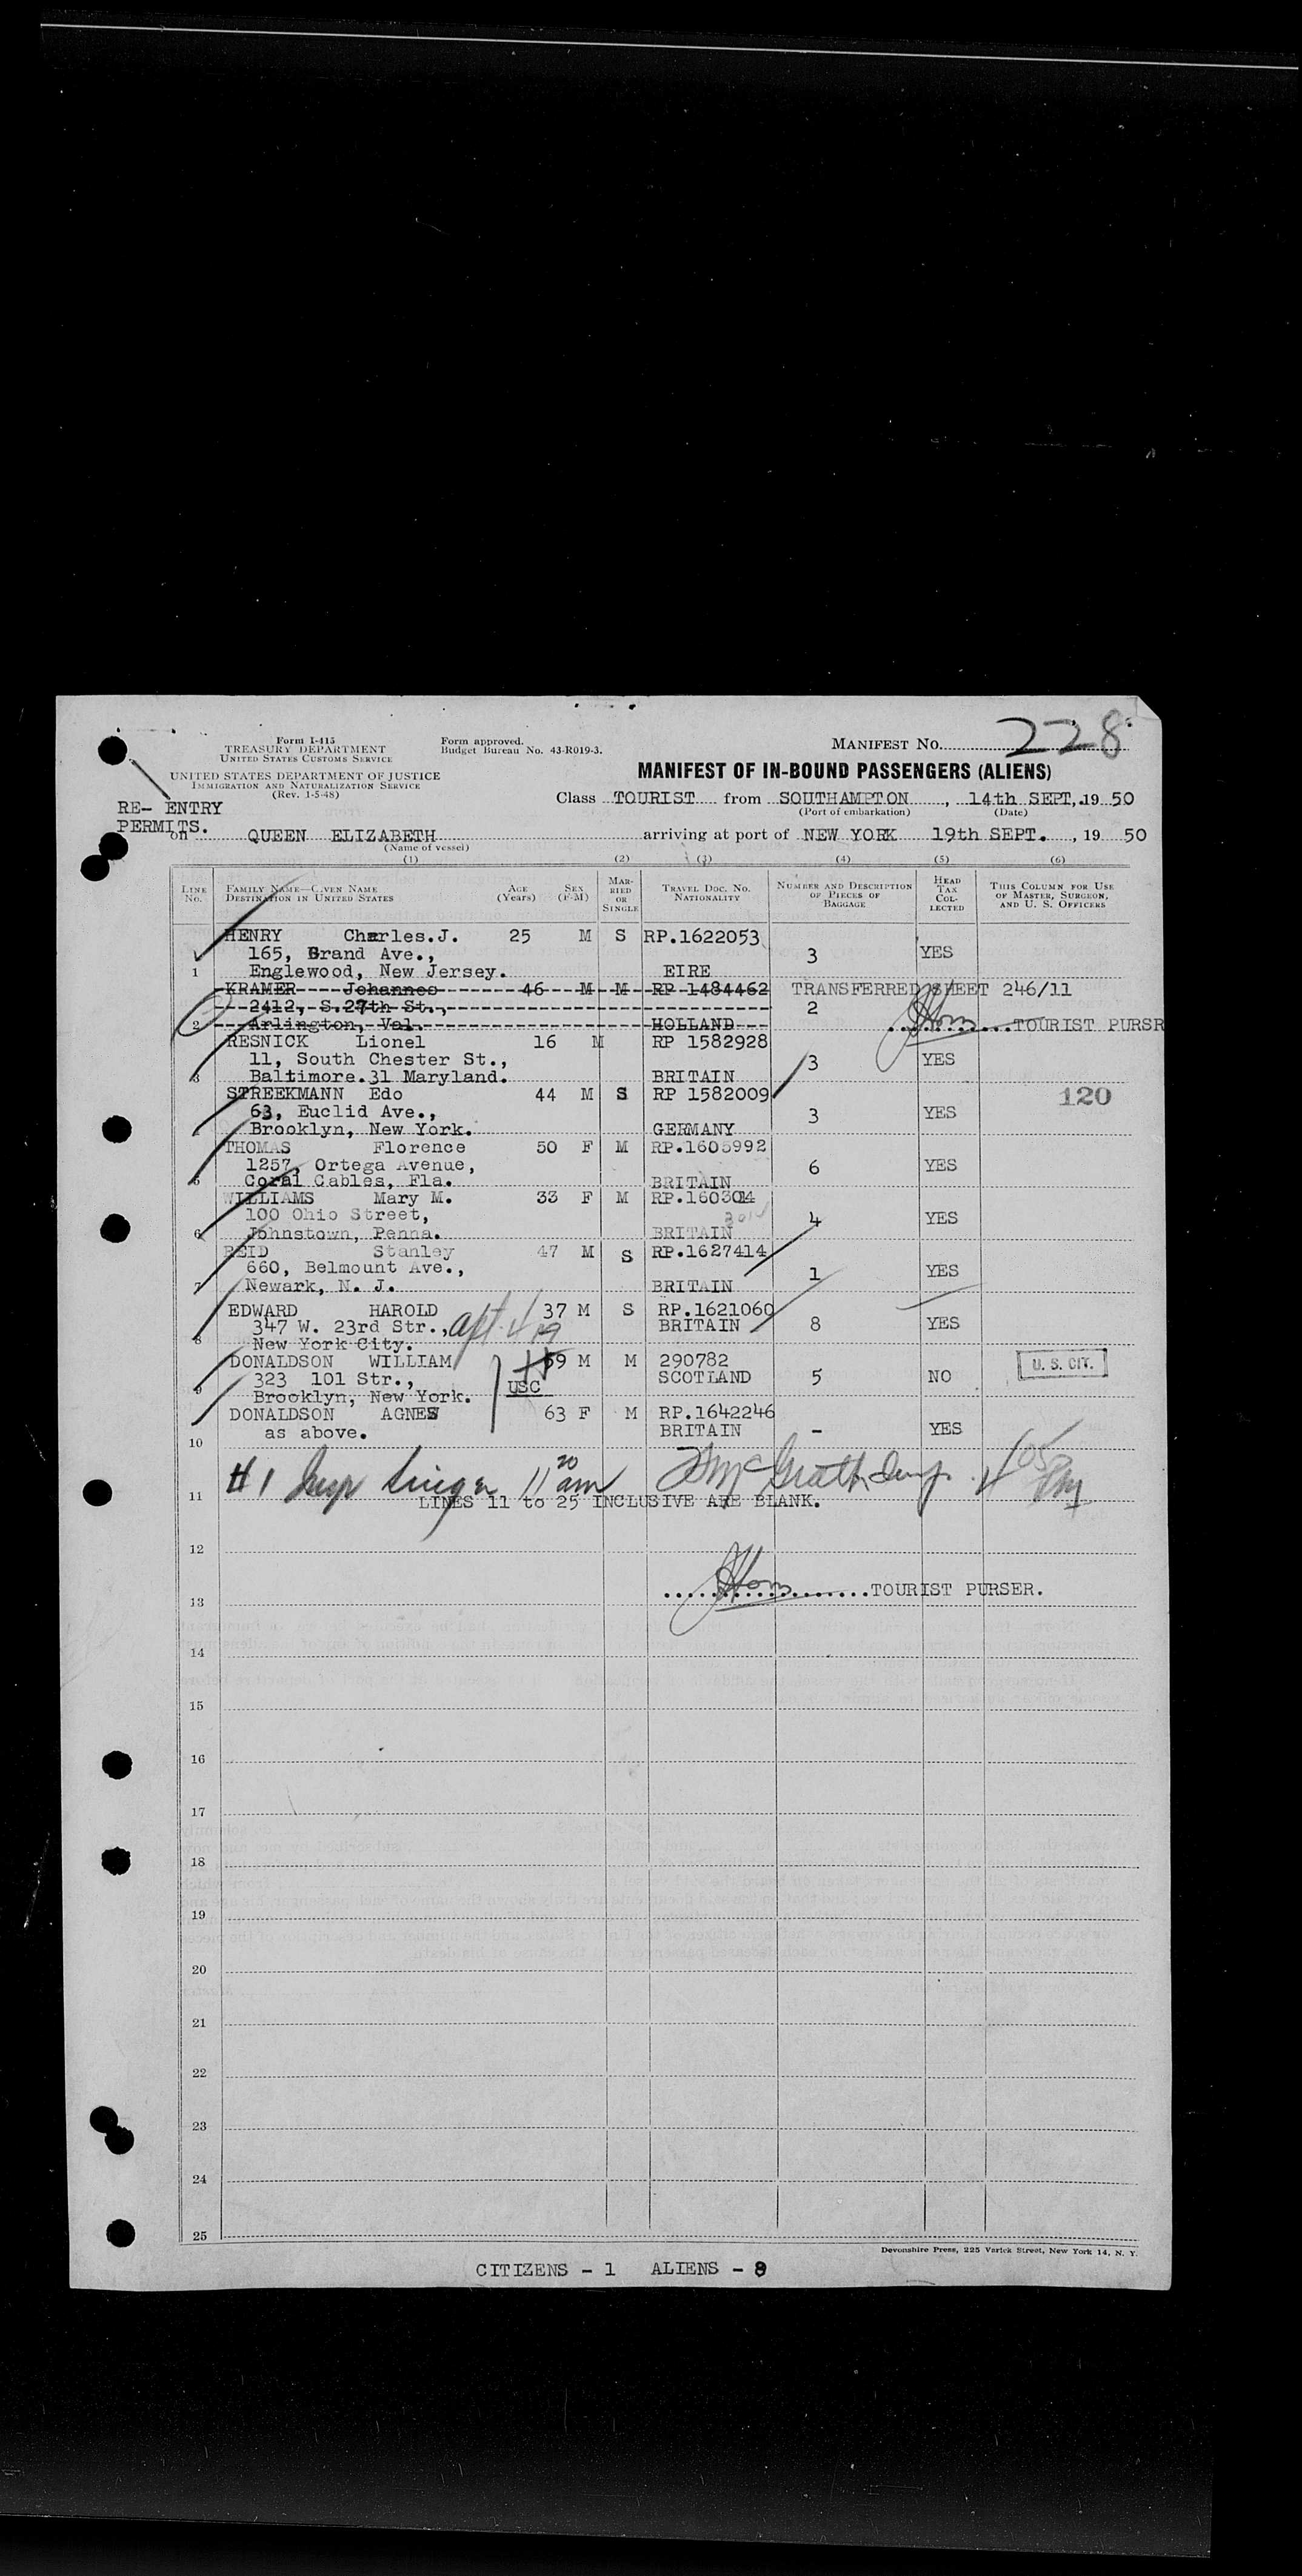 228
Form I-415
TREASURY DEPARTMENT
UNITED STATES CUSTOMS SERVICE
Form approved.
Budget Bureau No. 43-R019-3.
MANIFEST NO.
UNITED STATES DEPARTMENT OF JUSTICE
IMMIGRATION AND NATURALIZATION SERVICE
(Rev. 1-5-48)
MANIFEST OF IN-BOUND PASSENGERS (ALIENS)
RE- ENTRY
PERMITS.
Class TOURIST from SOUTHAMPTON, 14th SEPT, 19 50
(Port of embarkation) (Date)
on QUEEN ELIZABETH arriving at port of NEW YORK 19th SEPT., 19 50
(Name of vessel)
(1) (2) (3) (4) (5) (6)
LINE NO. FAMILY NAME—GIVEN NAME DESTINATION IN UNITED STATES AGE (Years) SEX (F-M) MARRIED OR SINGLE TRAVEL DOC. NO. NATIONALITY NUMBER AND DESCRIPTION OF PIECES OF BAGGAGE HEAD TAX COLLECTED THIS COLUMN FOR USE OF MASTER, SURGEON, AND U. S. OFFICERS
HENRY Charles.J. 25 M S RP.1622053
165, Grand Ave., 3 YES
1 Englewood, New Jersey. EIRE
KRAMER Johannes 46 M M RP 1484462 TRANSFERRED SHEET 246/11
2412, S.27th St., 2
2 Arlington, Val. HOLLAND TOURIST PURSR
RESNICK Lionel 16 M RP 1582928
11, South Chester St., 3 YES
3 Baltimore.31 Maryland. BRITAIN
STREEKMANN Edo 44 M S RP 1582009 120
63, Euclid Ave., 3 YES
4 Brooklyn, New York. GERMANY
THOMAS Florence 50 F M RP.1605992
1257, Ortega Avenue, 6 YES
5 Coral Cables, Fla. BRITAIN
WILLIAMS Mary M. 33 F M
100 Ohio Street, 4 YES
6 Johnstown, Penna. BRITAIN
REID Stanley 47 M S RP.1627414
660, Belmount Ave., 1 YES
7 Newark, N. J. BRITAIN
EDWARD HAROLD 37 M S RP.1621060
347 W. 23rd Str., apt. 4 BRITAIN 8 YES
8 New York City.
DONALDSON WILLIAM 59 M M 290782 U. S. CIT.
323 101 Str., USC SCOTLAND 5 NO
9 Brooklyn, New York.
DONALDSON AGNES 63 F M RP.1642246
as above. BRITAIN - YES
10
#1 Insp Singer 11 20 am McGrath Insp. 4 05 PM
11 LINES 11 to 25 INCLUSIVE ARE BLANK.
12
TOURIST PURSER.
13
14
15
16
17
18
19
20
21
22
23
24
25
Devonshire Press, 225 Varick Street, New York 14, N. Y.
CITIZENS - 1 ALIENS - 8